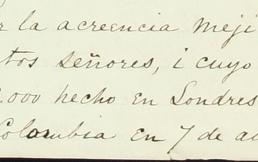 r la acreencia Meji
tos señores, i cuyo
.000 hecho en Londres
Colombia en 7 de a